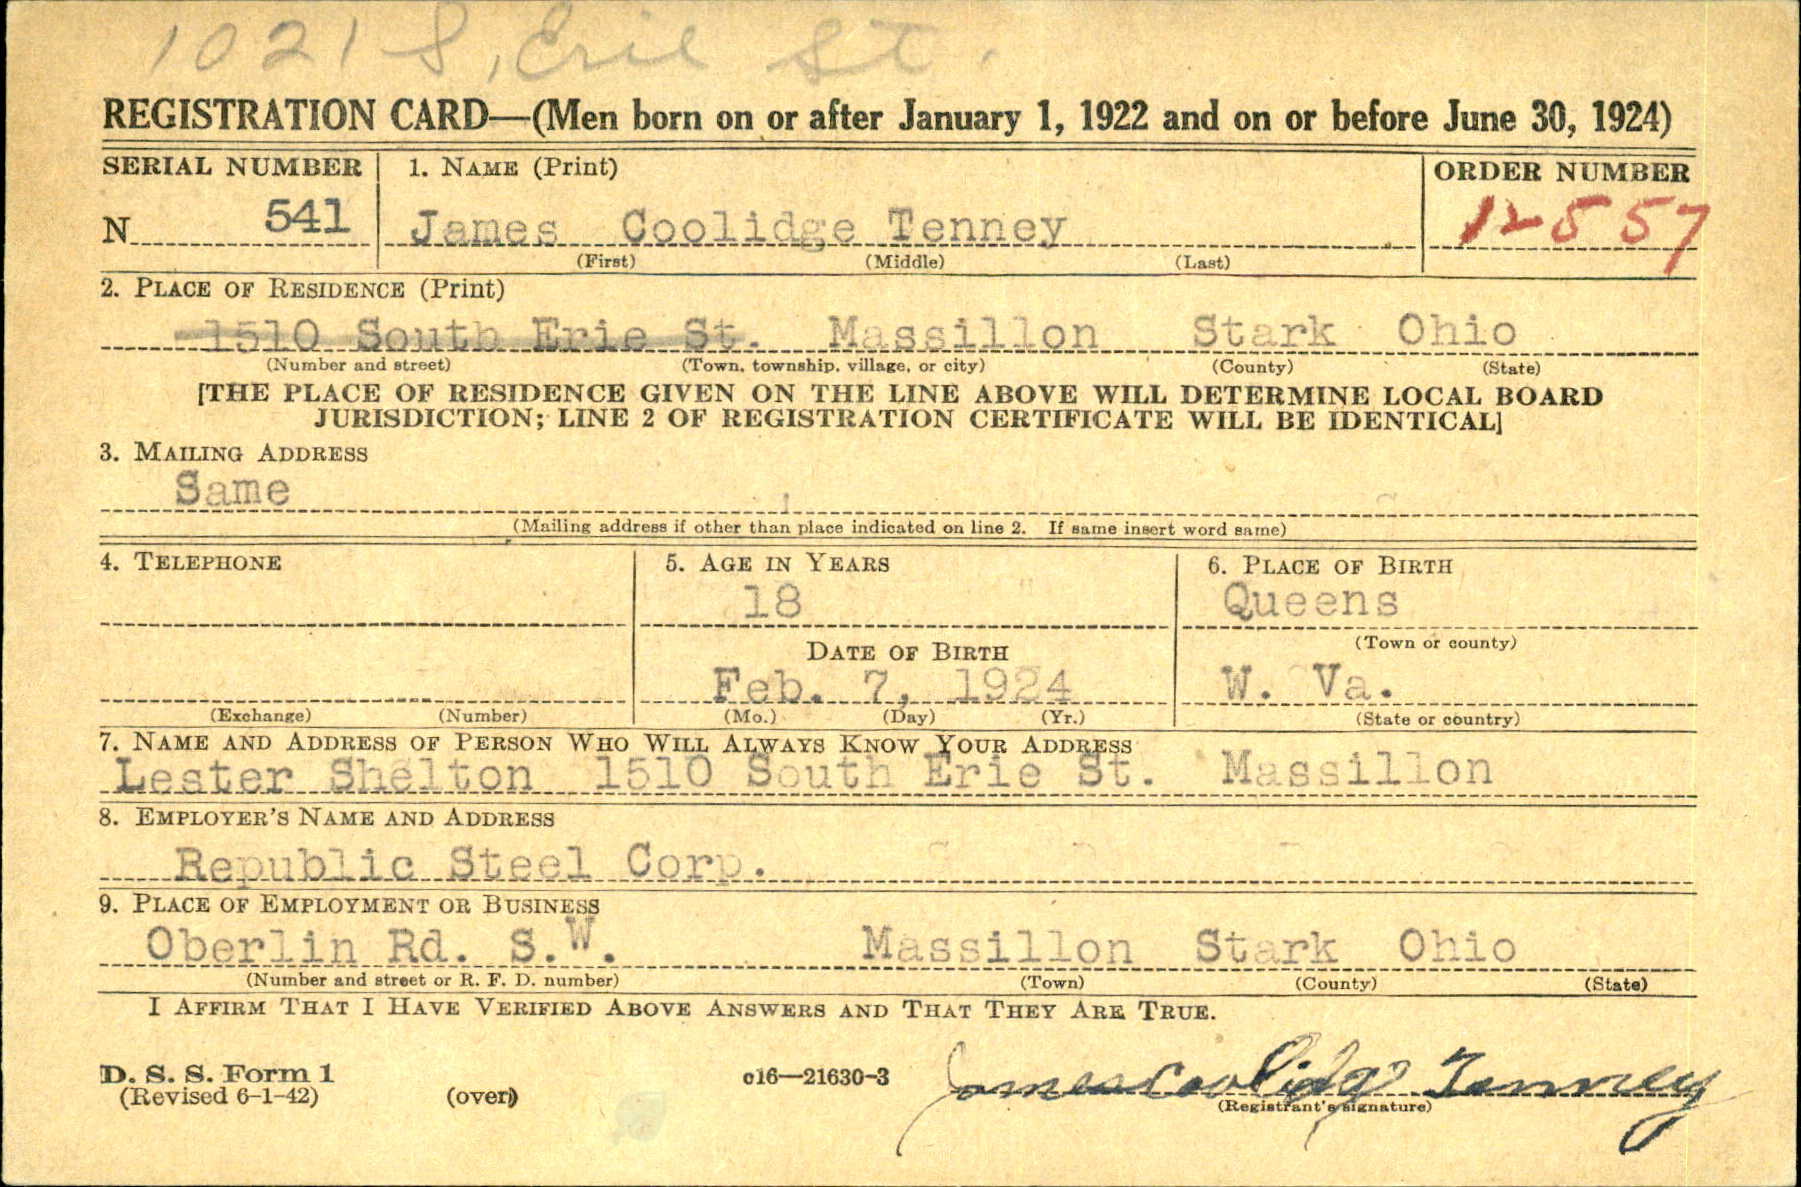 1021 S, Erie St.
REGISTRATION CARD—(Men born on or after January 1, 1922 and on or before June 30, 1924)
SERIAL NUMBER 1. NAME (Print) ORDER NUMBER
N 541 James Coolidge Tenney 12557
(First) (Middle) (Last)
2. PLACE OF RESIDENCE (Print)
1510 South Erie St. Massillon Stark Ohio
(Number and street) (Town, township, village, or city) (County) (State)
[THE PLACE OF RESIDENCE GIVEN ON THE LINE ABOVE WILL DETERMINE LOCAL BOARD
JURISDICTION; LINE 2 OF REGISTRATION CERTIFICATE WILL BE IDENTICAL]
3. MAILING ADDRESS
Same
(Mailing address if other than place indicated on line 2. If same insert word same)
4. TELEPHONE 5. AGE IN YEARS 6. PLACE OF BIRTH
18 Queens
DATE OF BIRTH (Town or county)
Feb. 7, 1924 W. Va.
(Exchange) (Number) (Mo.) (Day) (Yr.) (State or country)
7. NAME AND ADDRESS OF PERSON WHO WILL ALWAYS KNOW YOUR ADDRESS
Lester Shelton 1510 South Erie St. Massillon
8. EMPLOYER'S NAME AND ADDRESS
Republic Steel Corp.
9. PLACE OF EMPLOYMENT OR BUSINESS
Oberlin Rd. S.W. Massillon Stark Ohio
(Number and street or R. F. D. number) (Town) (County) (State)
I AFFIRM THAT I HAVE VERIFIED ABOVE ANSWERS AND THAT THEY ARE TRUE.
D. S. S. Form 1 c16—21630-3 James Coolidge Tenney
(Revised 6-1-42) (over) (Registrant's signature)